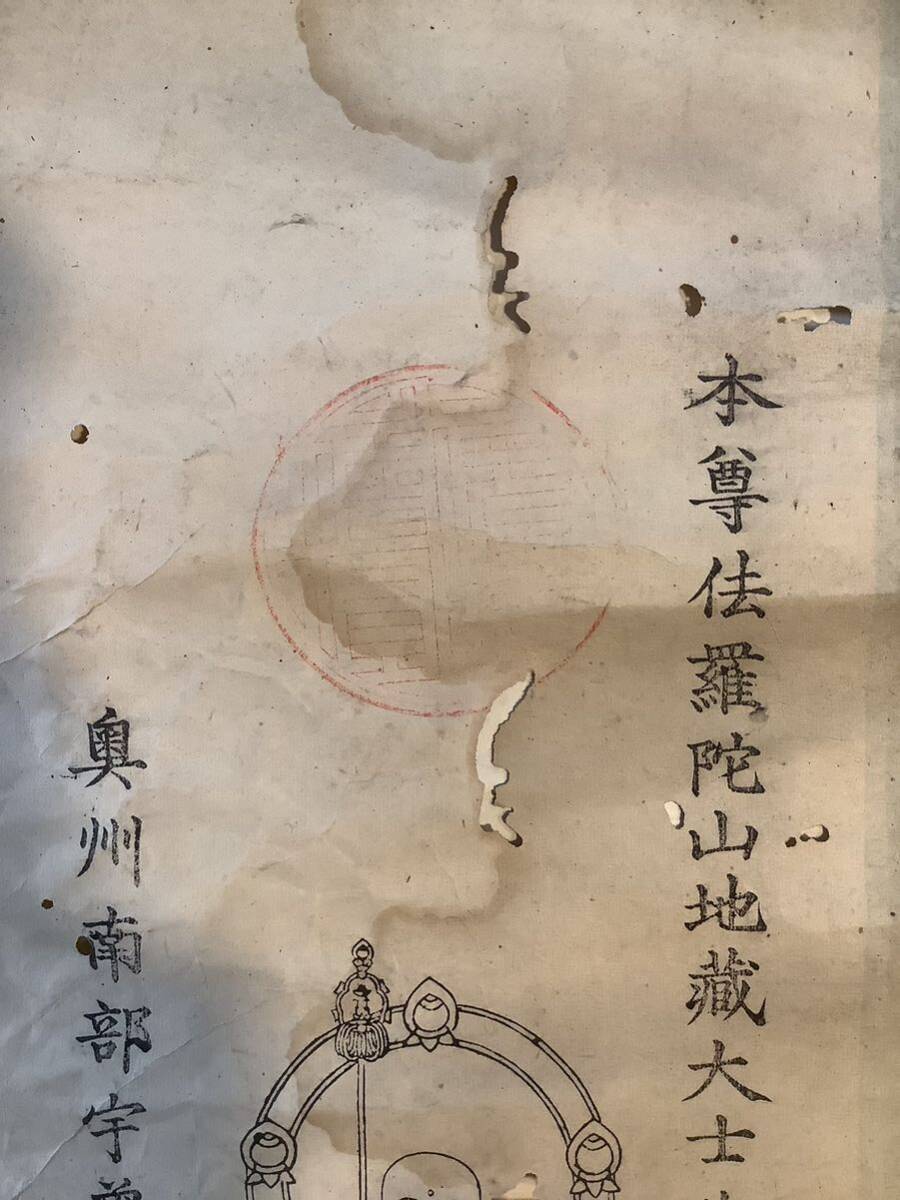 本尊佉羅陀山地藏大士
奥州南部宇曽